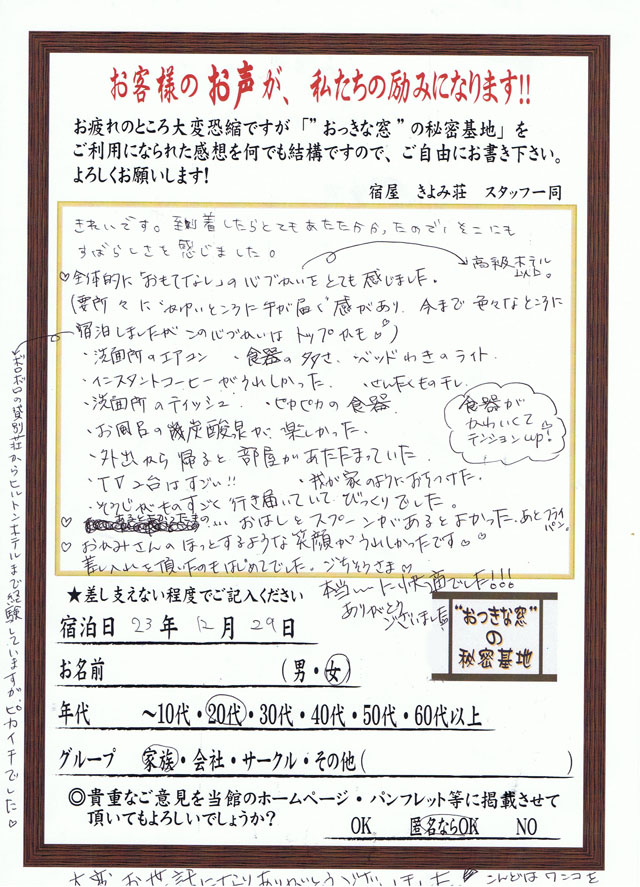 お客様のお声が、私たちの励みになります!!
お疲れのところ大変恐縮ですが「”おっきな窓”の秘密基地」を
ご利用になられた感想を何でも結構ですので、ご自由にお書き下さい。
よろしくお願いします!
宿屋 きよみ荘 スタッフ一同
きれいです。到着したらとてもあたたかかったので、そこにも
すばらしさを感じました。
高級ホテル
以上。
♡全体的に「おもてなし」の心づかいをとても感じました。
(要所々にかゆいところに手が届く感があり、今まで色々なところに
宿泊しましたがこの心づかいはトップかも♡♡)
・洗面所のエアコン ・食器の多さ、ベッドわきのライト
・インスタントコーヒーがうれしかった。 ・せんたくもの干し
・洗面所のティッシュ ・ピカピカの食器
食器が
かわいくて
テンションup!
・お風呂の炭酸泉が楽しかった。
・外出から帰ると部屋があたたまっていた
・TV2台はすごい!! ・我が家のようにおちつけた。
・そうじがものすごく行き届いていて、びっくりでした。
♡ の… おはしとスプーンがあるとよかった。あとフライ
パン。
♡ おかみさんのほっとするような笑顔がうれしかったです♡♡
差し入れを頂いたのもはじめてでした。ごちそうさま♡
本当ーに快適でした!!!
ありがとう
ございました
ボロボロの貸別荘からヒルトンホテルまで経験していますが、ピカイチでした♡
★差し支えない程度でご記入ください
宿泊日 23年 12月 29日
お名前 (男・女)
”おっきな窓”
の
秘密基地
年代 ~10代・20代・30代・40代・50代・60代以上
グループ 家族・会社・サークル・その他( )
◎貴重なご意見を当館のホームページ・パンフレット等に掲載させて
頂いてもよろしいでしょうか?
OK 匿名ならOK NO
大変お世話になりありがとうございました。 こんどはワンコを